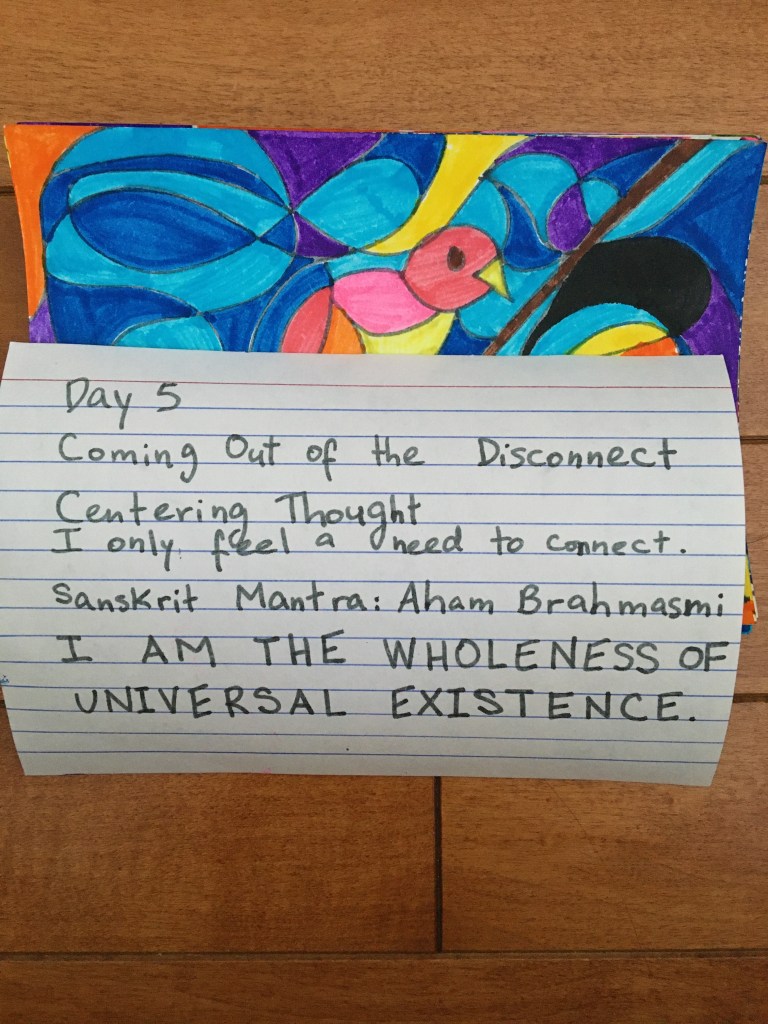 Day 5
Coming Out of the Disconnect
Centering Thought
I only feel a need to connect.
Sanskrit Mantra: Aham Brahmasmi
I AM THE WHOLENESS OF
UNIVERSAL EXISTENCE.